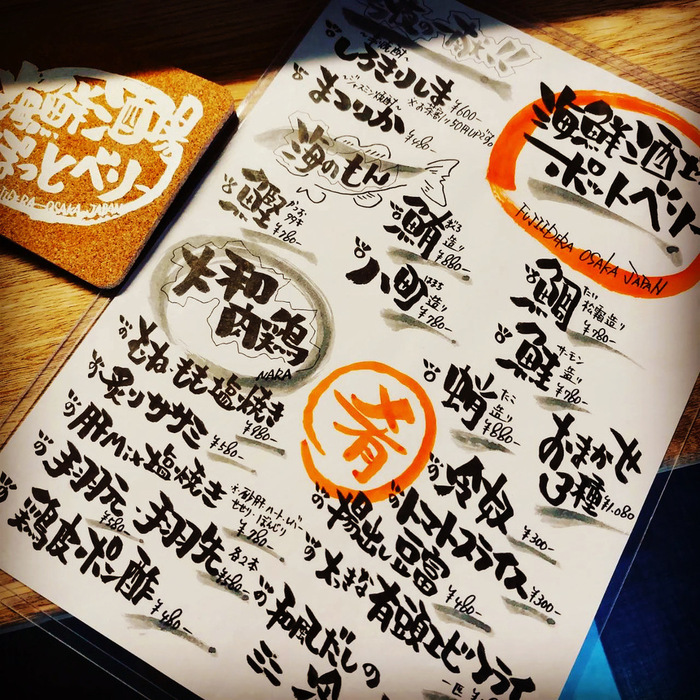 海鮮酒場
ぽっとベリー
FUJIIDERA OSAKA JAPAN
しろきりしま
¥600-
まつりか
ジャスミン焼酎
¥480-
海鮮酒
ポットベリー
FUJIIDERA OSAKA JAPAN
海のもん
鰹
かつお
タタキ
¥780-
鮪
まぐろ
造り
¥880-
八町
はまち
造り
¥780-
鯛
たい
松霜造り
¥780-
鮭
サーモン
造り
¥780-
蛸
たこ
造り
¥880-
おまかせ
3種
¥1,080
大和
肉鶏
NARA
とね・もも塩焼き
¥980-
炙りササミ
¥580-
肝Mix塩焼き
¥780-
手羽元・手羽先
各2本
¥580-
¥580-
鶏皮ポン酢
¥480-
肴
冷奴
¥300-
トマトスライス
¥300-
揚出し豆富
¥480-
大きな有頭エビフライ
一匹
和風だしの
ミニ